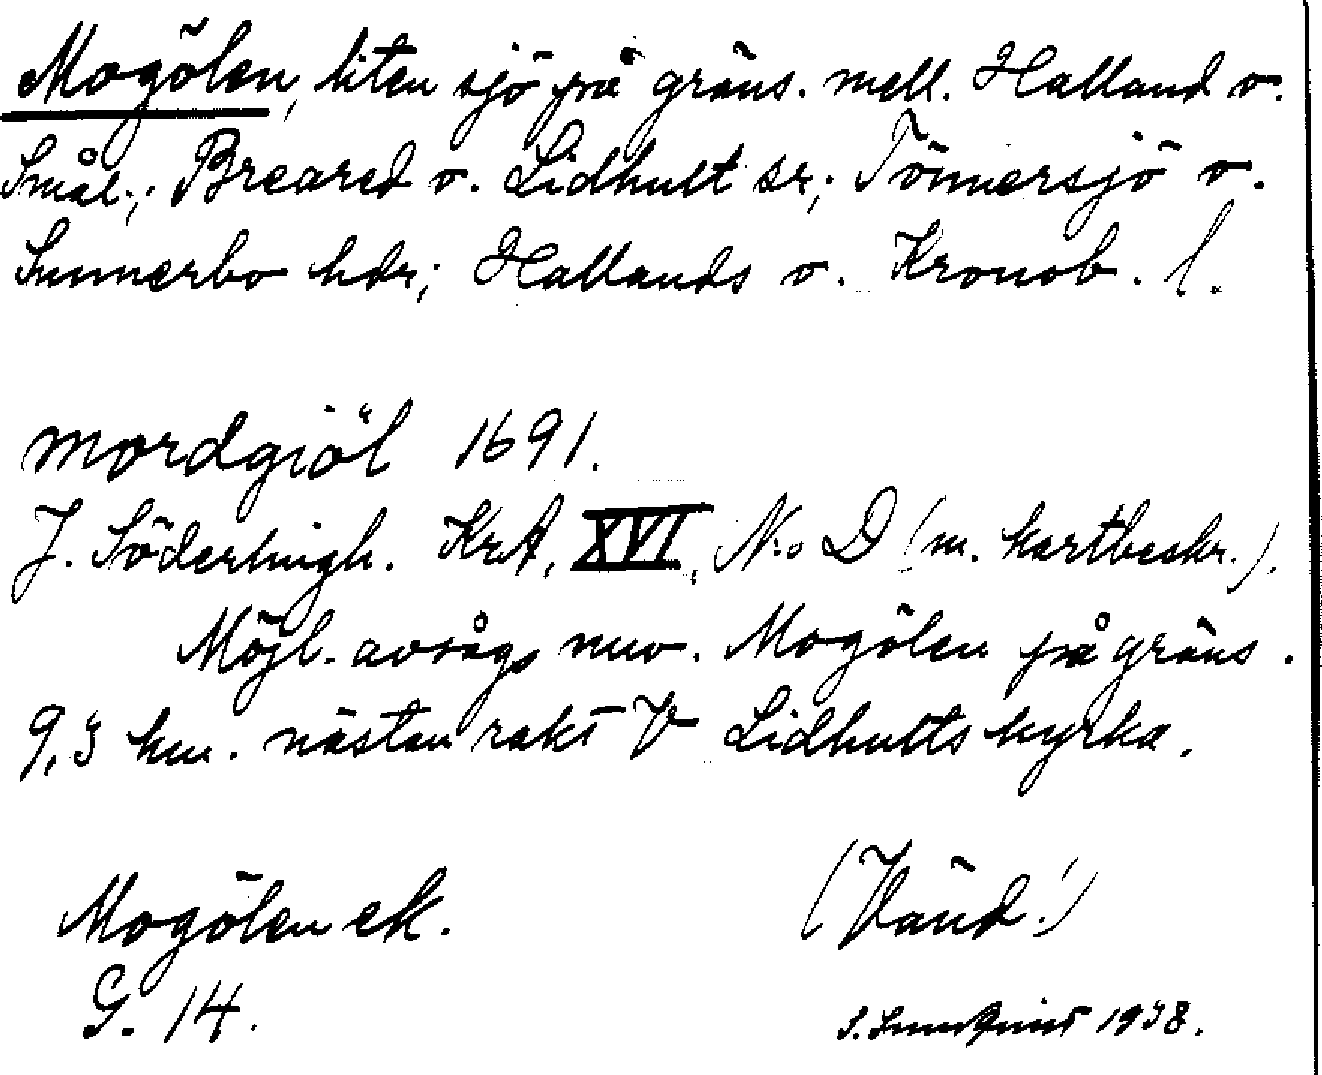 Mogölen, liten sjö på gräns. mell. Halland o.
Smål.; Breared o. Lidhult sr; Tönnersjö o.
Sunnerbo hdr; Hallands o. Kronob. l.
mordgiöl 1691.
J. Söderlingh. KrA, XVI, N:o D (m. kartbeskr.).
Möjl. avsågs nuv. Mogölen på gräns.
9,3 km. nästan rakt V Lidhults kyrka.
Mogölen ek.
(Vänd!)
G. 14.
S. Sundquist 1938.